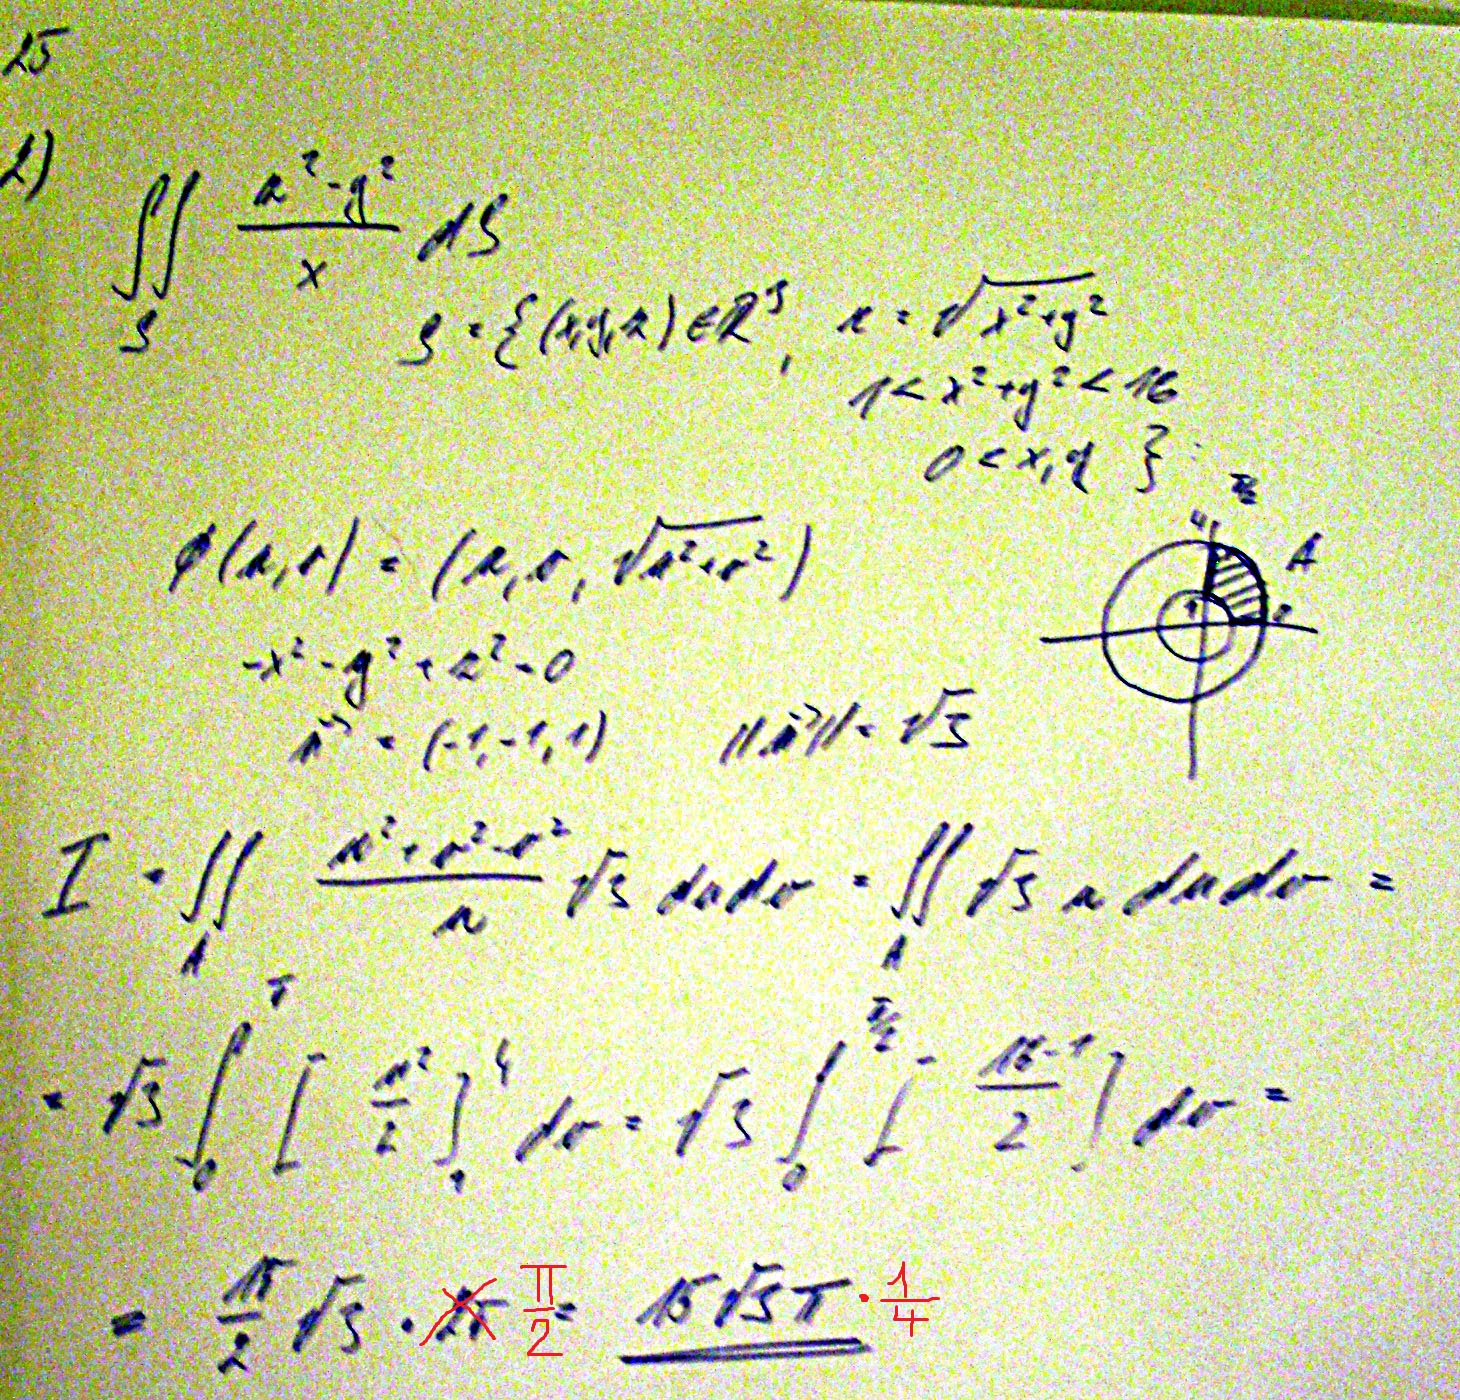 25
2)
∬_S (z² - y²)/x dS
S = {(x,y,z) ∈ R³, z = √(x²+y²)
1 < x²+y² < 16
0 < x,y }
π/2
4
A
1
0
φ(u,v) = (u, v, √(u²+v²))
-x² - y² + z² = 0
n⃗ = (-1,-1,1) ||n⃗|| = √3
I = ∬_A (u² + v² - v²)/u √3 du dv = ∬_A √3 u du dv =
= √3 ∫_0^π [u²/2]_1^4 dv = √3 ∫_0^{π/2} [(16-1)/2] dv =
= 15/2 √3 · 2π π/2 = 15√3 π · 1/4